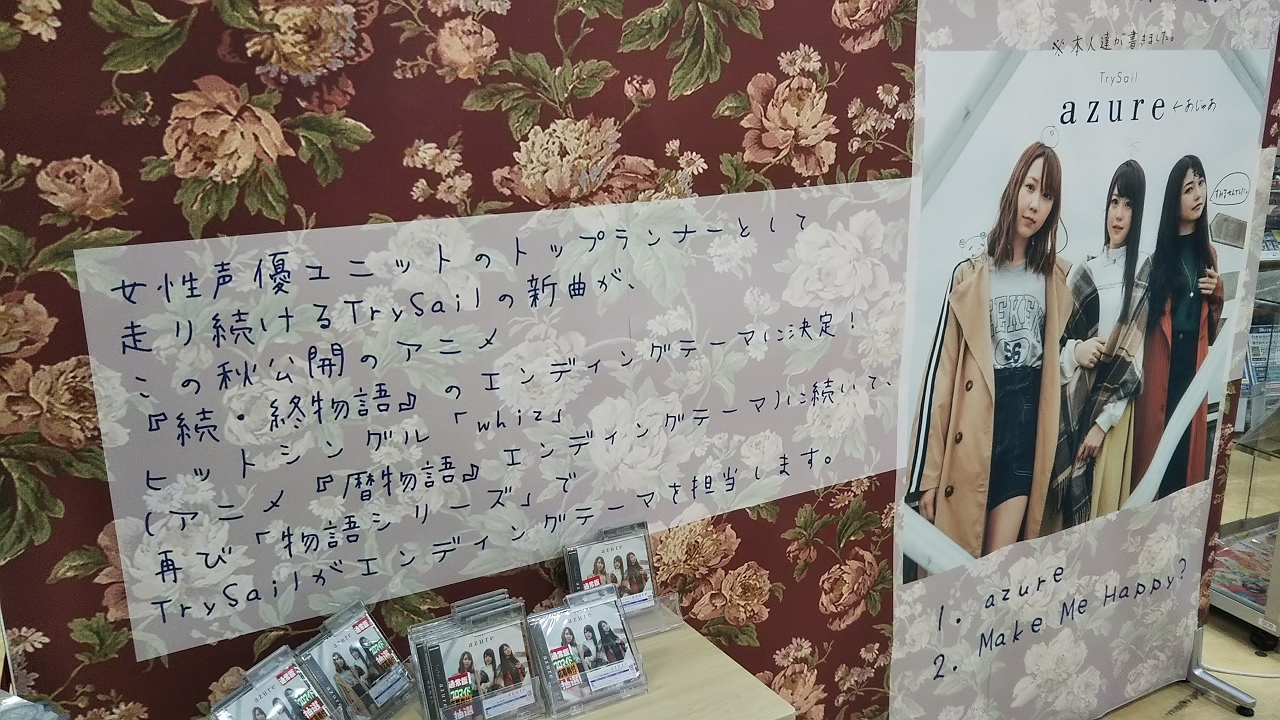 女性声優ユニットのトップランナーとして
走り続けるTrySailの新曲が、
この秋公開のアニメ
『続・終物語』のエンディングテーマに決定!
ヒットシングル「whiz」
(アニメ『暦物語』エンディングテーマ)に続いて、
再び「物語シリーズ」で
TrySailがエンディングテーマを担当します。
※本人達が書きました。
TrySail
azure ←あじゅあ
1. azure
2. Make Me Happy?
azure
azure
azure
azure
通常盤
ブロマイド